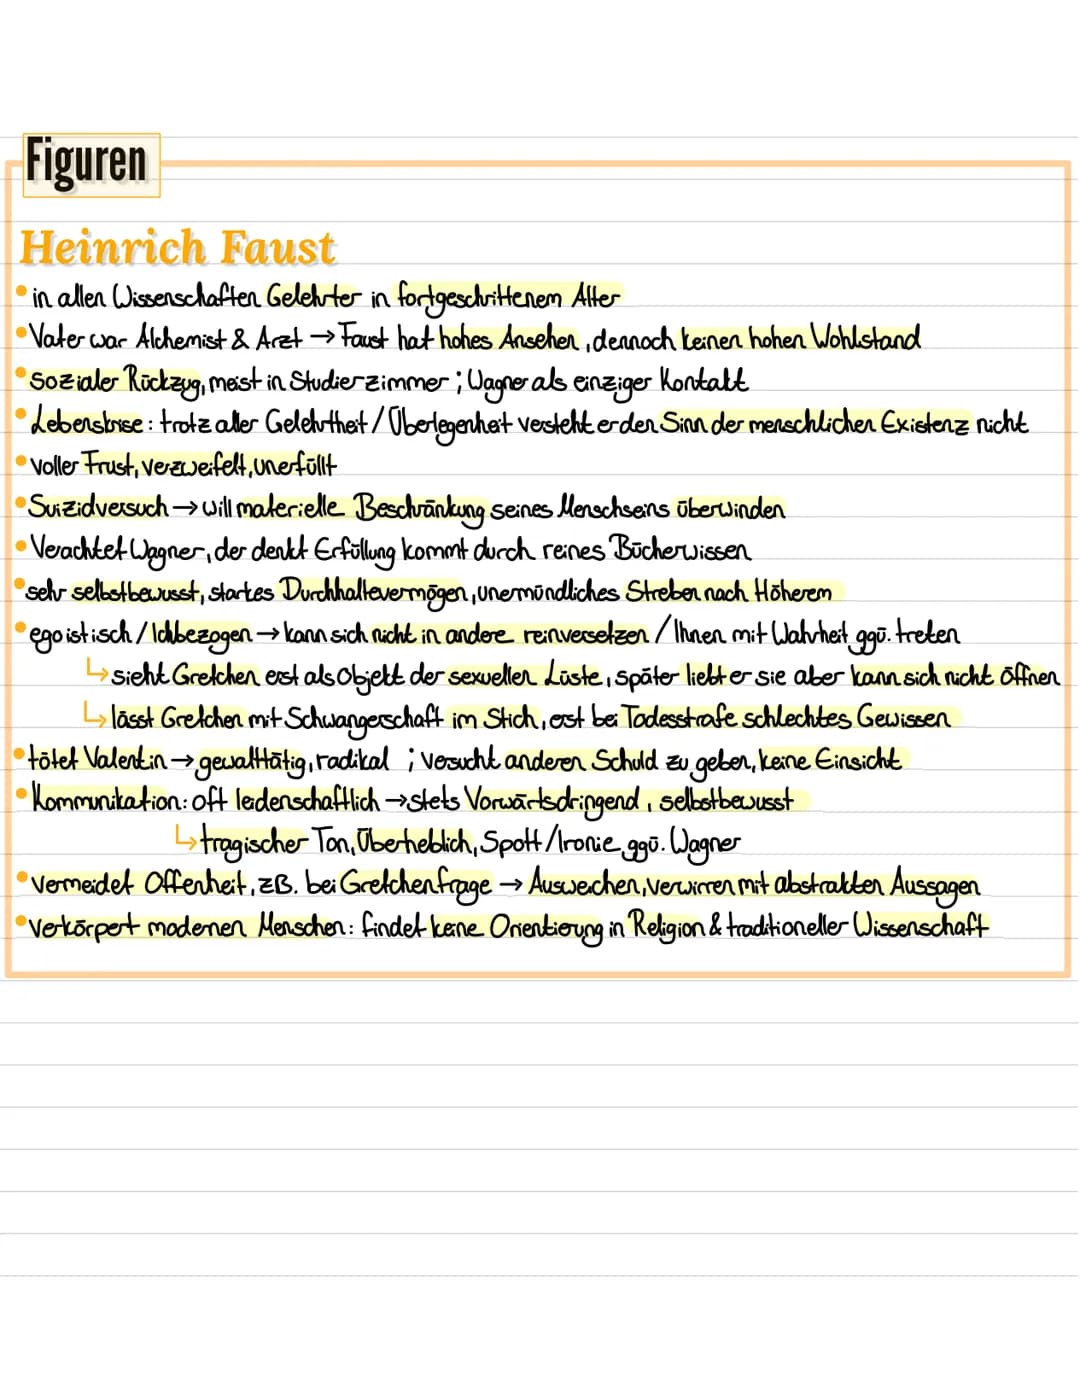 Figuren
Heinrich Faust
• in allen Wissenschaften Gelehrter in fortgeschrittenem Alter
• Vater war Alchemist & Arzt → Faust hat hohes Ansehen, dennoch keinen hohen Wohlstand
• Sozialer Rückzug, meist in Studierzimmer; Wagner als einziger Kontakt
• Lebenskrise: trotz aller Gelehrtheit / Überlegenheit versteht er den Sinn der menschlichen Existenz nicht
• voller Frust, verzweifelt, unerfüllt
• Suizidversuch → will materielle Beschränkung seines Menschseins überwinden
• Verachtet Wagner, der denkt Erfüllung kommt durch reines Bücherwissen
• sehr selbstbewusst, starkes Durchhaltevermögen, unermündliches Streben nach Höherem
• egoistisch / Ichbezogen → kann sich nicht in andere reinversetzen / Ihnen mit Wahrheit ggü. treten
↳ sieht Gretchen erst als Objekt der sexuellen Lüste, später liebt er sie aber kann sich nicht öffnen
↳ lässt Gretchen mit Schwangerschaft im Stich, erst bei Todesstrafe schlechtes Gewissen
• tötet Valentin → gewalttätig, radikal ; versucht anderen Schuld zu geben, keine Einsicht
• Kommunikation: oft leidenschaftlich → stets Vorwärtsdringend, selbstbewusst
↳ tragischer Ton, Überheblich, Spott / Ironie ggü. Wagner
• Vermeidet Offenheit, zB. bei Gretchenfrage → Ausweichen, verwirren mit abstrakten Aussagen
• verkörpert modernen Menschen: findet keine Orientierung in Religion & traditioneller Wissenschaft